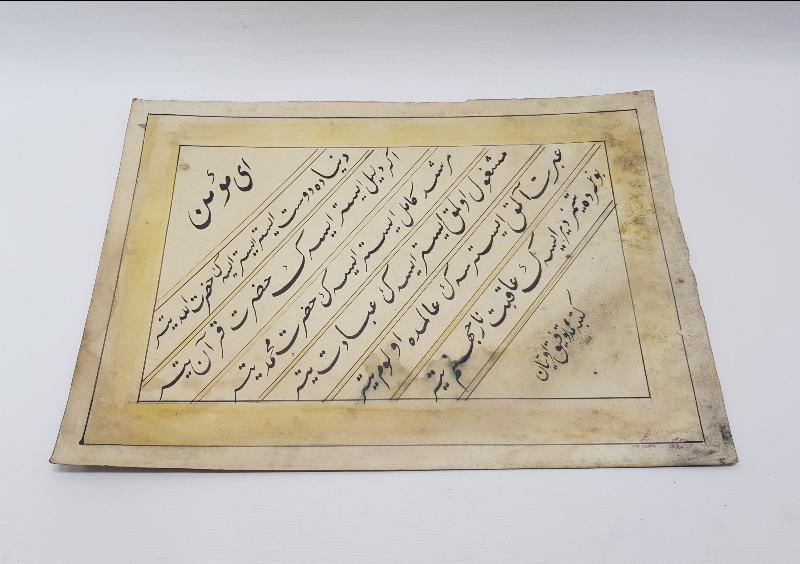 ای مؤمن
دنیاده دوست ایستر ایسه ڭ حضرت الله یتر
اگر دلیل ایستر ایسه ڭ حضرت قرآن یتر
مرشد کامل ایستر ایسه ڭ حضرت محمد یتر
مشغول اولمق ایستر ایسه ڭ عبادت یتر
عبرت آلمق ایسترسه ڭ عالمده اولوم یتر
بونلرده یتمز دیر ایسه ڭ عاقبت نار جهنم یتر
کتبه